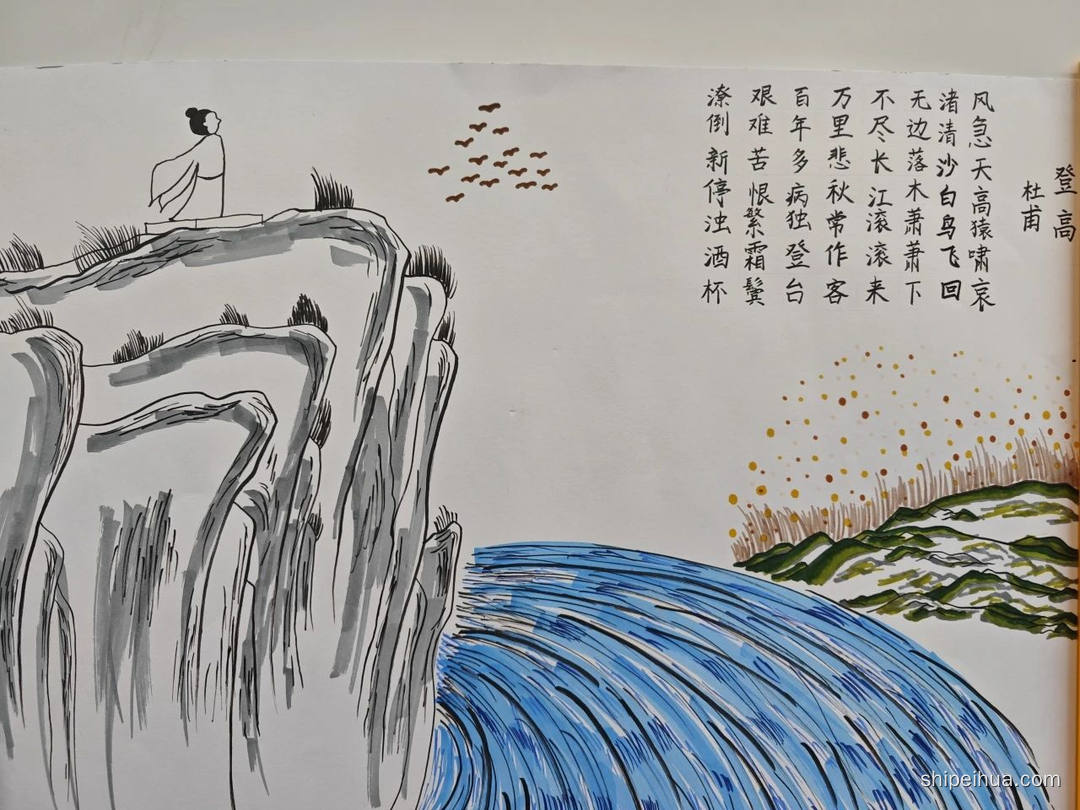 登高
杜甫
风急天高猿啸哀
渚清沙白鸟飞回
无边落木萧萧下
不尽长江滚滚来
万里悲秋常作客
百年多病独登台
艰难苦恨繁霜鬓
潦倒新停浊酒杯
shipeihua.com